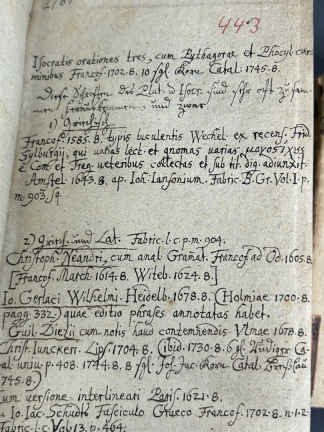 443
Isocratis orationes tres, cum Pythagorae et Phocyl. car
minibus Francof. 1702. 8. 10 sgl. Korn Catal. 1745. 8.
Diese Schriften des Plut. u Isocr. sind sehr oft zusam
men, und zwar
1) Griechisch
Francof. 1585. 8. typis luculentis Wechel ex recens. Frid.
Sylburgii, qui varias lect. et gnomas varias, μονοστίχους
è Com. et Trag. veteribus collectas et sub tit. dig. adiunxit.
Amstel. 1643. 8. ap. Ioh. Iansonium. Fabric. B. Gr. Vol. I. p.
m. 903. sq.
2) Griech. und Lat. Fabric. l. c. p. m. 904.
Christoph. Neandri, cum anal. Gramat. Francof. ad Od. 1605. 8
[Francof. March. 1614. 8. Witeb. 1624. 8.]
Io. Gerlaci Wilhelmi. Heidelb. 1678. 8. (Holmiae. 1700. 8.
pagg. 332) quae editio phrases annotatas habet.
Guil. Diezii cum notis haud contemnendis Ulmae. 1678. 8.
Christ. Iunckeri. Lips. 1704. 8. (ibid. 1730. 8. 6 gl.
p. 408. 1744. 8. 8 sgl. Catal.
745. 8)
cum versione interlineari Paris. 1621. 8.
Io. Iac. Schudts Fasciculo Graeco Francof. 1702. 8. n. 1. 2.
Fabric. l. c. Vol. 13. p. 464.